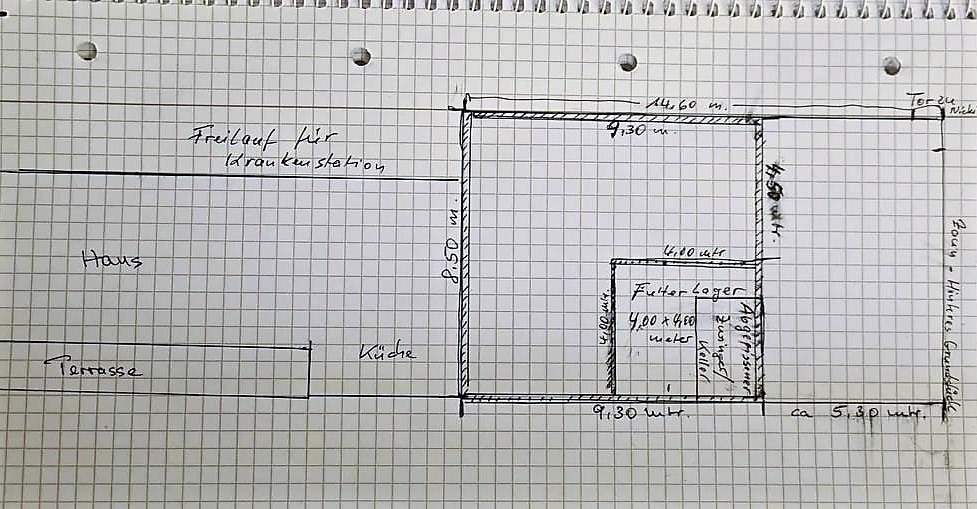 14,60 m.
Tor zu
Nicki
9,30 m.
Freilauf für
Krankenstation
4,50 mtr.
8,50 m.
Haus
4,00 mtr
Futter Lager
4,00 mtr.
4,00 x 4,00
meter
Abgerissener
Zwinger/
Keller
Zaun - Hinteres Grundstück
Küche
Terrasse
9,30 mtr.
ca 5,30 mtr.